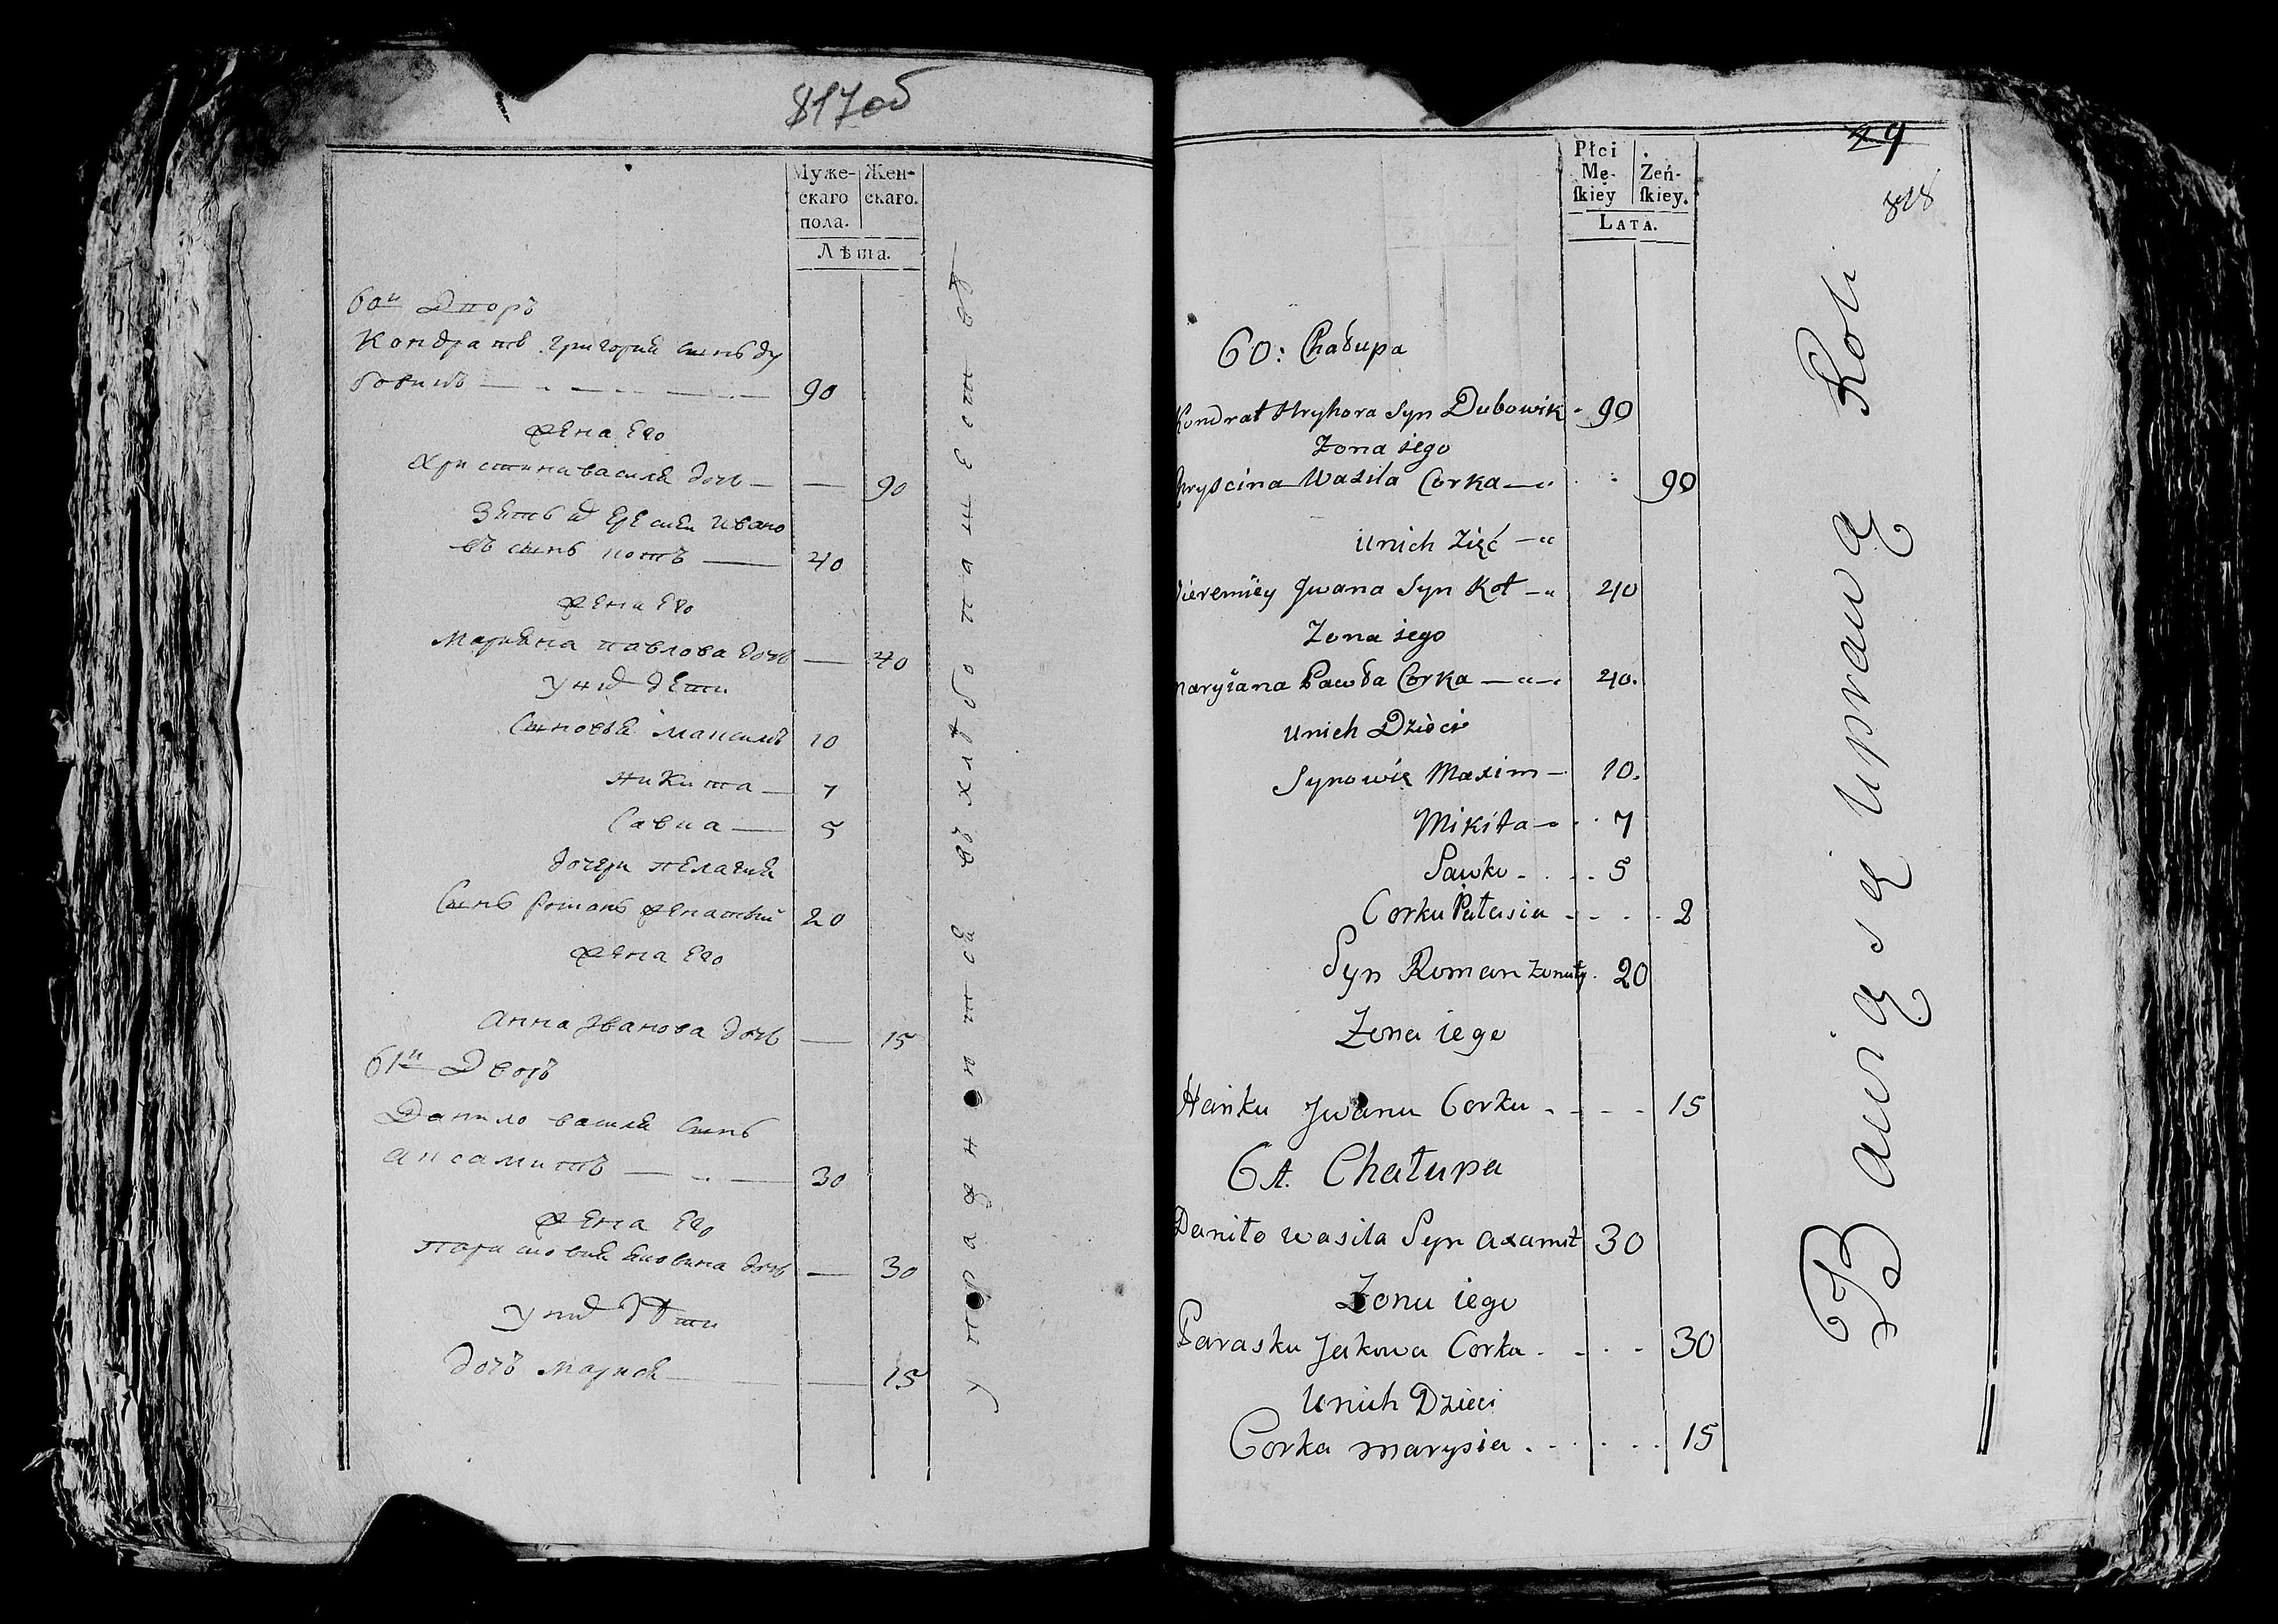 817об
Муже- Жен-
скаго скаго.
пола.
Лѣта.
60й Дворъ
Кондратъ Григорія сынъ Ду
бовикъ 90
Жена Его
Христина василя дочь 90
Ивано
въ сынъ котъ 40
Жена Его
Марияна павлова дочь 40
У них дети
Сыновья Максимъ 10
Никита 7
Савка 5
дочери пелагия
Сынъ Романъ женатый 20
Жена Его
Анна Иванова дочь 15
61й Дворъ
Данило василя Сынъ
аксамитъ 30
Жена Его
дочь 30
У них Дети
дочь Марися 15
упражняется въ хлебопашестве
49
818
Płci
Mę- Zeń-
ſkiey ſkiey.
LATA.
60: Chałupa
Kondrat Hryhora Syn Dubowik 90
Zona iego
Chryscina Wasila Corka 90
unich Zięć
Jieremiey Jwana Syn Kot 40
Zona iego
maryiana Pawła Corka 40.
unich Dzieci
Synowie Maxim 10.
Mikita 7
Sawka 5
Corka Pałasia 2
Syn Roman Zonaty 20
Zona iego
Hanka Jwana Corka 15
61. Chałupa
Daniło wasila Syn axamit 30
Zona iego
Paraska Jakowa Corka 30
Unich Dzieci
Corka marysia 15
Bawią się Uprawą Roli